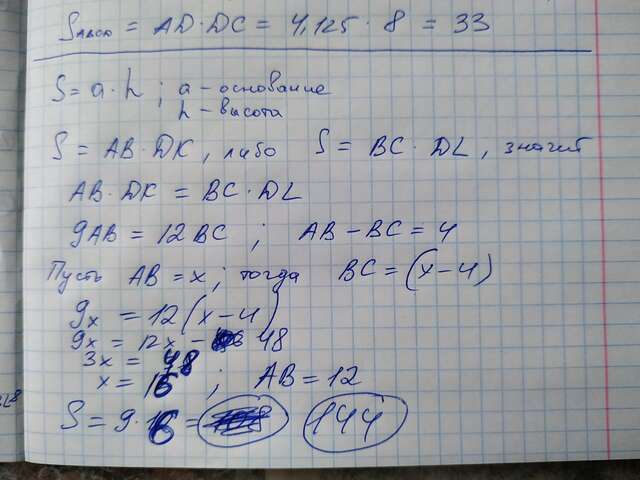 S ABCD = AD · DC = 4,125 · 8 = 33
S = a · h ; a - основание
h - высота
S = AB · DK, либо S = BC · DL, значит
AB · DK = BC · DL
9AB = 12BC ; AB - BC = 4
Пусть AB = x; тогда BC = (x - 4)
9x = 12(x - 4)
9x = 12x - 48
3x = 48
x = 16 ; AB = 12
S = 9 · 16 = 144